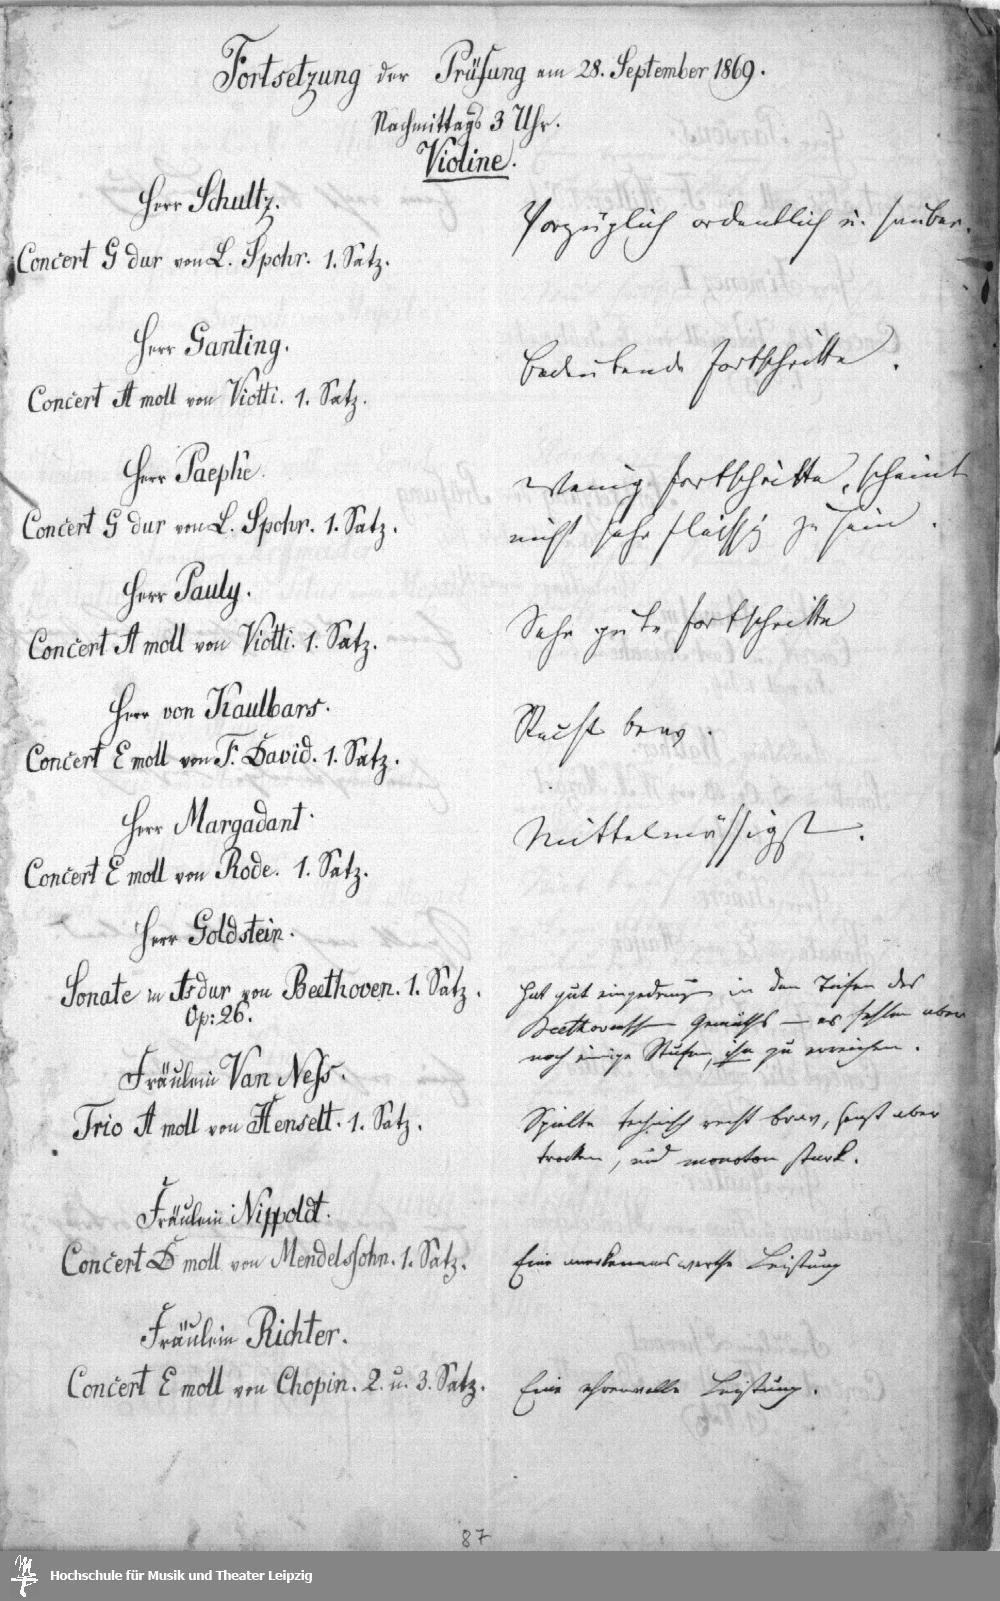 Fortsetzung der Prüfung am 28. September 1869.
Nachmittags 3 Uhr.
Violine.
Herr Schultz.
Vorzüglich ordentlich u. sauber.
Concert G dur von L. Spohr. 1. Satz.
Herr Ganting.
Bedeutende Fortschritte.
Concert A moll von Viotti. 1. Satz.
Herr Paepke.
Wenig Fortschritte, scheint
nicht sehr fleissig zu sein.
Concert G dur von L. Spohr. 1. Satz.
Herr Pauly.
Sehr gute Fortschritte
Concert A moll von Viotti. 1. Satz.
Herr von Kaulbars.
Recht brav.
Concert E moll von F. David. 1. Satz.
Herr Margadant.
Mittelmässigst.
Concert E moll von Rode. 1. Satz.
Herr Goldstein.
Sonate in As dur von Beethoven. 1. Satz.
Op: 26.
Hat gut eingedrung in den Tiefen des
Beethovenschen Gemüths — es fehlen aber
noch einige Stufen, ihn zu erreichen.
Fräulein Van Ness.
Trio A moll von Henselt. 1. Satz.
Spielte technisch recht brav, sonst aber
trocken, und monoton stark.
Fräulein Nippoldt.
Concert D moll von Mendelssohn. 1. Satz.
Eine anerkennenswerthe Leistung
Fräulein Richter.
Concert E moll von Chopin. 2. u. 3. Satz.
Eine ehrenvolle Leistung.
87
Hochschule für Musik und Theater Leipzig